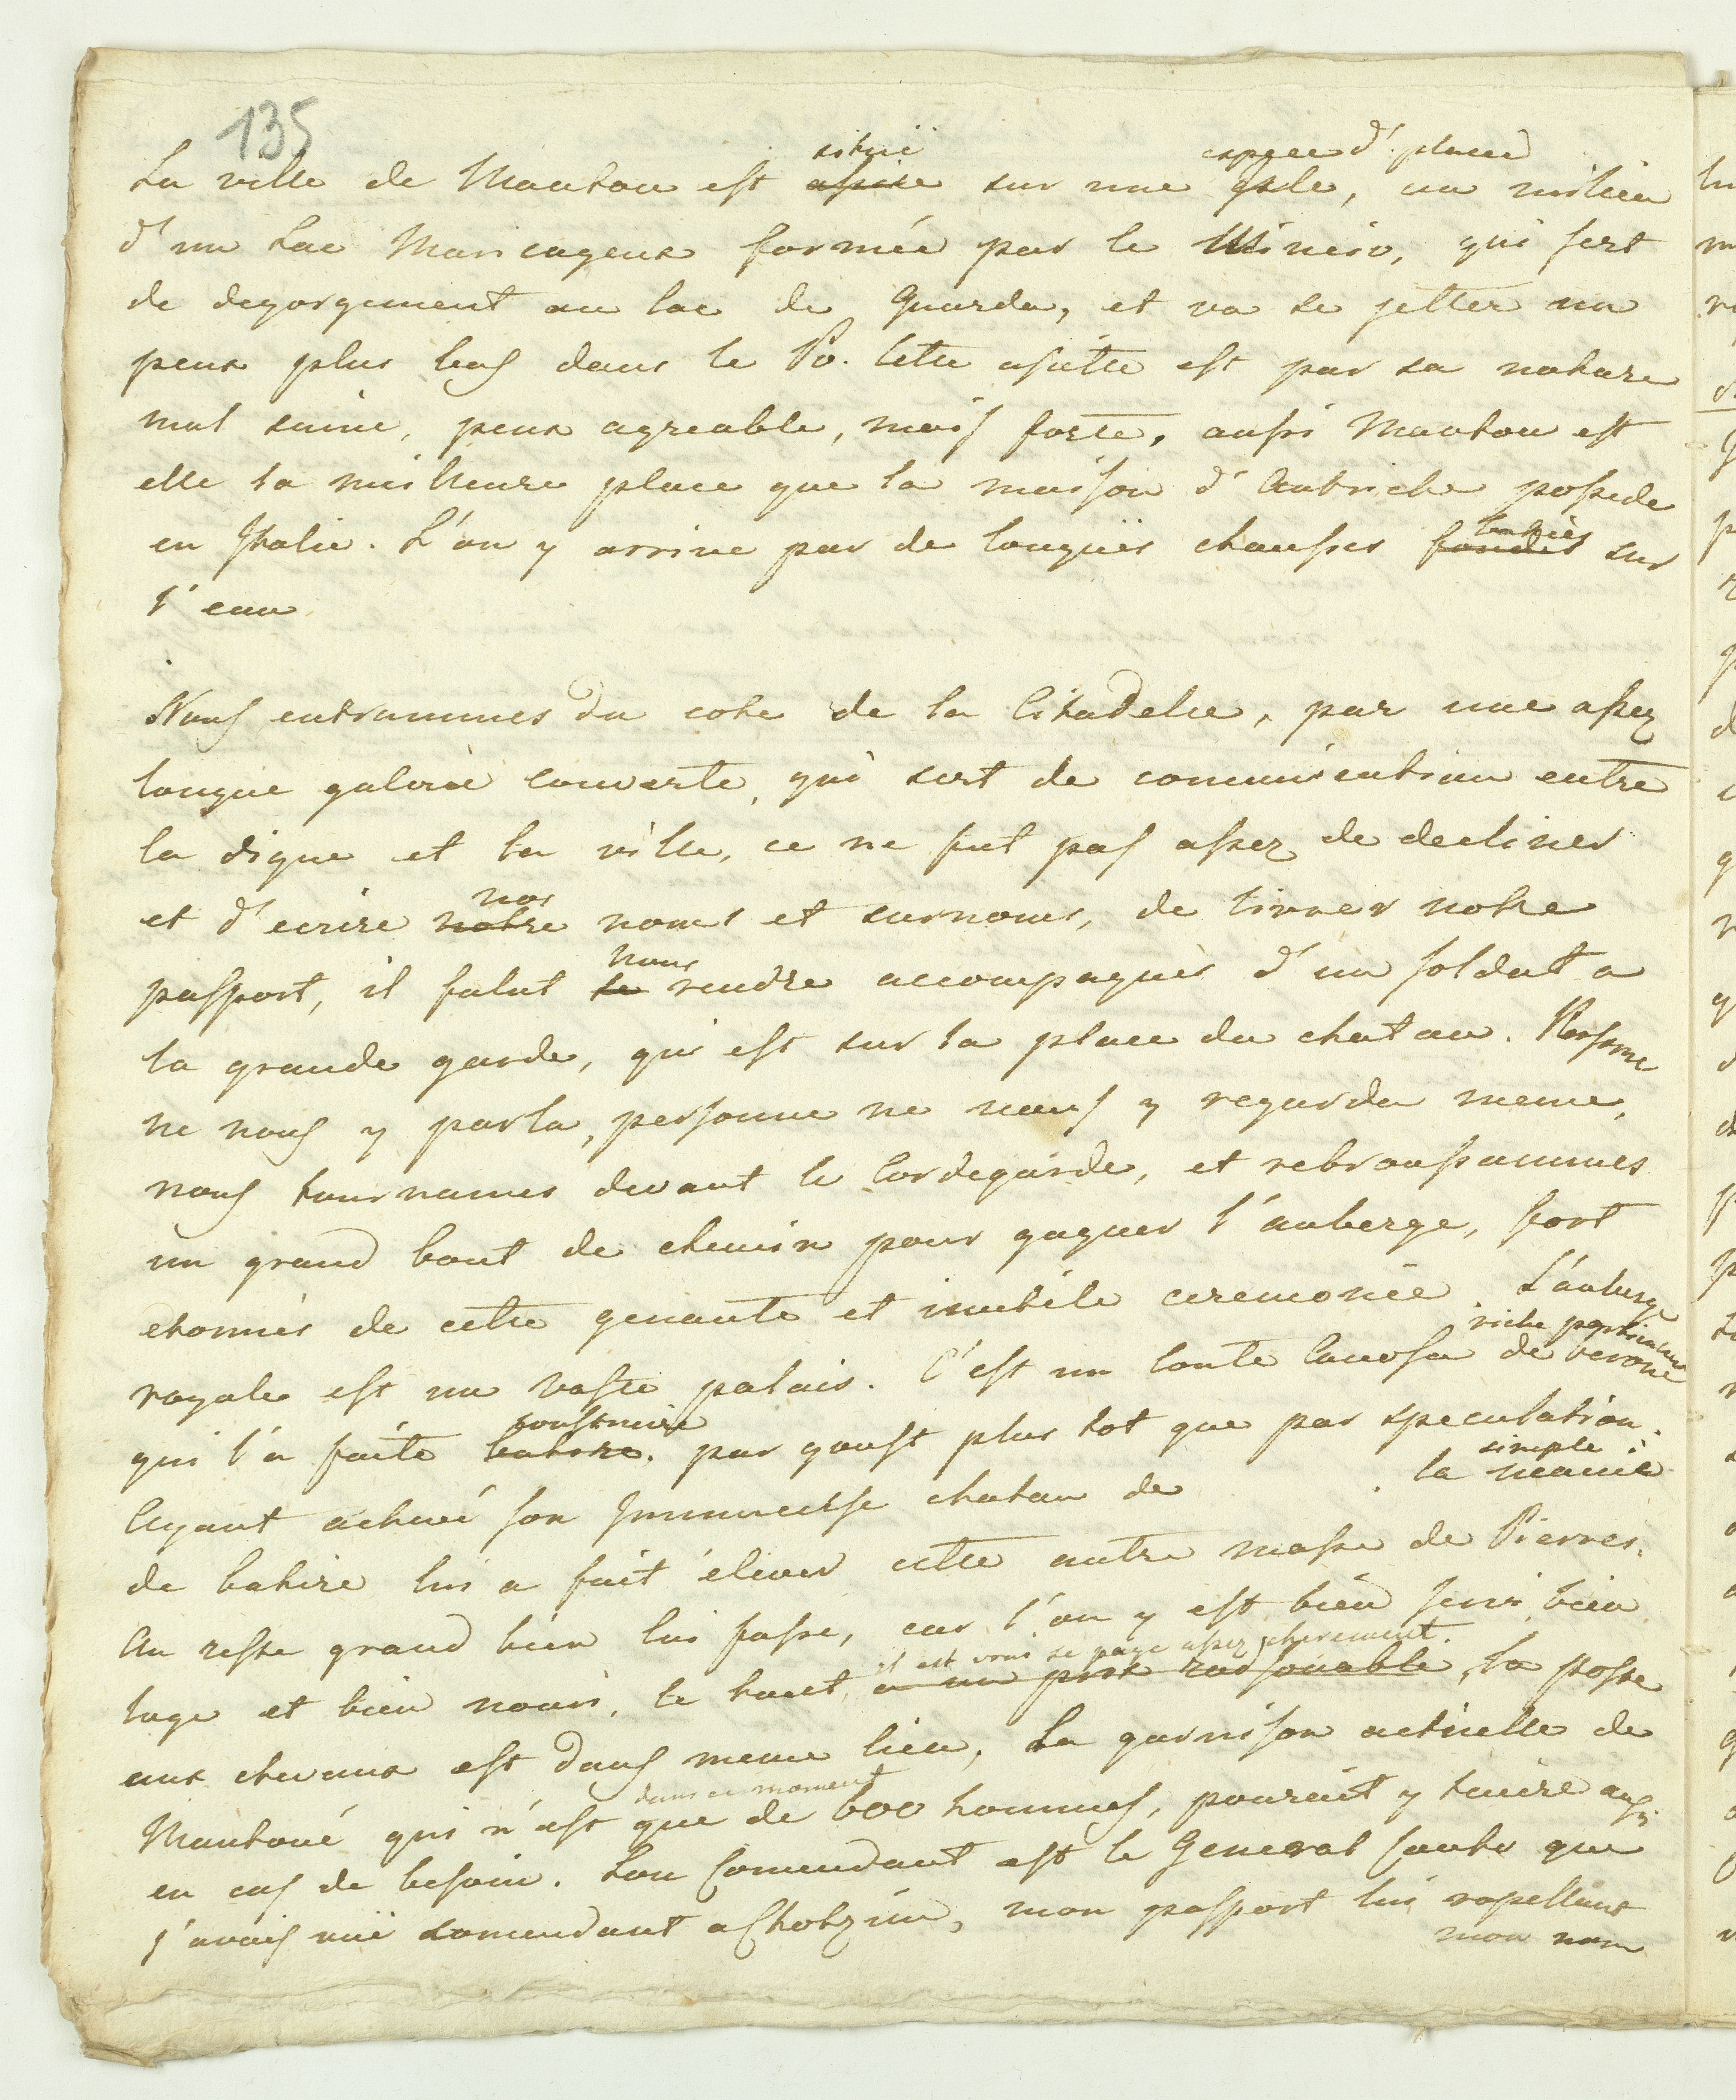 135
situé espece d'. place
La ville de Mantou est assise sur une Isle, au milieu
d'un Lac Maricageux formée par le Mincio, qui sert
de degorgement au lac de Guarda, et va se jetter un
peux plus bas dans le Po. Cette assiette est par sa nature
mal saine, peux agreable, mais forte, aussi Mantou est
elle la meilleure place que la maison d'Autriche possede
en Italie. L'on y arrive par de longuës chausses fondés sur
baties
l'eau
Nous entrammes du cote de la Citadelle, par une assez
longue galerie couverte, qui sert de communication entre
la digue et la ville, ce ne fut pas assez de decliner
nos
et d'ecrire notre noms et surnoms, de livrer notre
nous
passport, il falut se rendre accompagnés d'un soldat a
la grande garde, qui est sur la place du chatau. Persone
ne nous y parla, personne ne nous y regarda meme,
nous tournames devant le Cordegarde, et rebroussammes
un grand bout de chemin pour gagner l'auberge, fort
etonnés de cette genante et inutile ceremonie. L'auberge
riche particulier
royale est un vaste palais. C'est un Conte Canossa de verone
construire
qui l'a faite batire. par goust plus tot que par speculation.
simple
Ayant achevé son Immense chatau de . la manie
de batire lui a fait élever cette autre masse de Pierres.
Au reste grand bien lui fasse, car l'on y est bien servi, bien
il est vrai se paye assez cherement.
loge et bien nouri, le tout a un prix raisonable, la poste
aux chevaux est dans meme lieu, La garnison actuelle de
dans ce moment
Mantoue qui n'est que de 600 hommes, pourait y tenire aussi
en cas de besoin. Son Comendant est le General que
j'avais vuë comendant a Chotzim, mon passport lui rapellant
mon nom